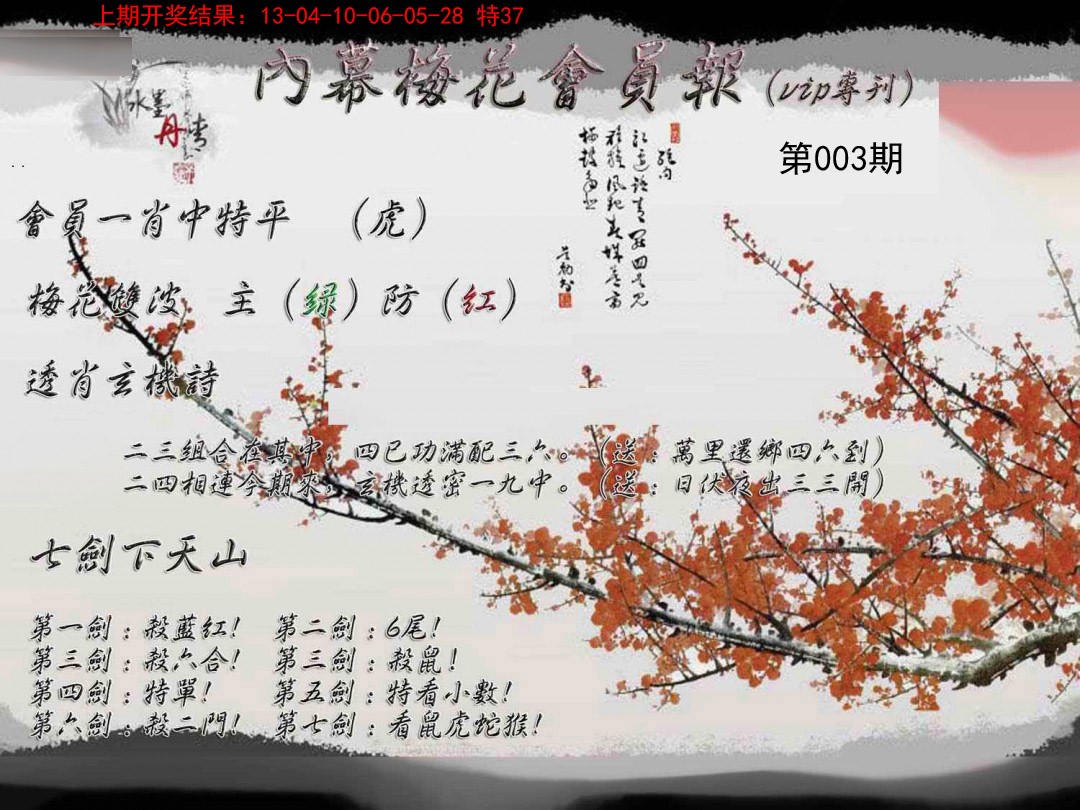 上期开奖结果：13-04-10-06-05-28 特37
內幕梅花會員報（vip專刊）
水墨
丹情
第003期
會員一肖中特平 （虎）
梅花雙波 主（绿）防（红）
透肖玄機詩
二三组合在其中，四已功滿配三六。（送：萬里還鄉四六到）
二四相連今期來，玄機透密一九中。（送：日伏夜出三三開）
七劍下天山
第一劍：殺藍红！ 第二劍：6尾！
第三劍：殺六合！ 第三劍：殺鼠！
第四劍：特單！ 第五劍：特看小數！
第六劍：殺二門！ 第七劍：看鼠虎蛇猴！